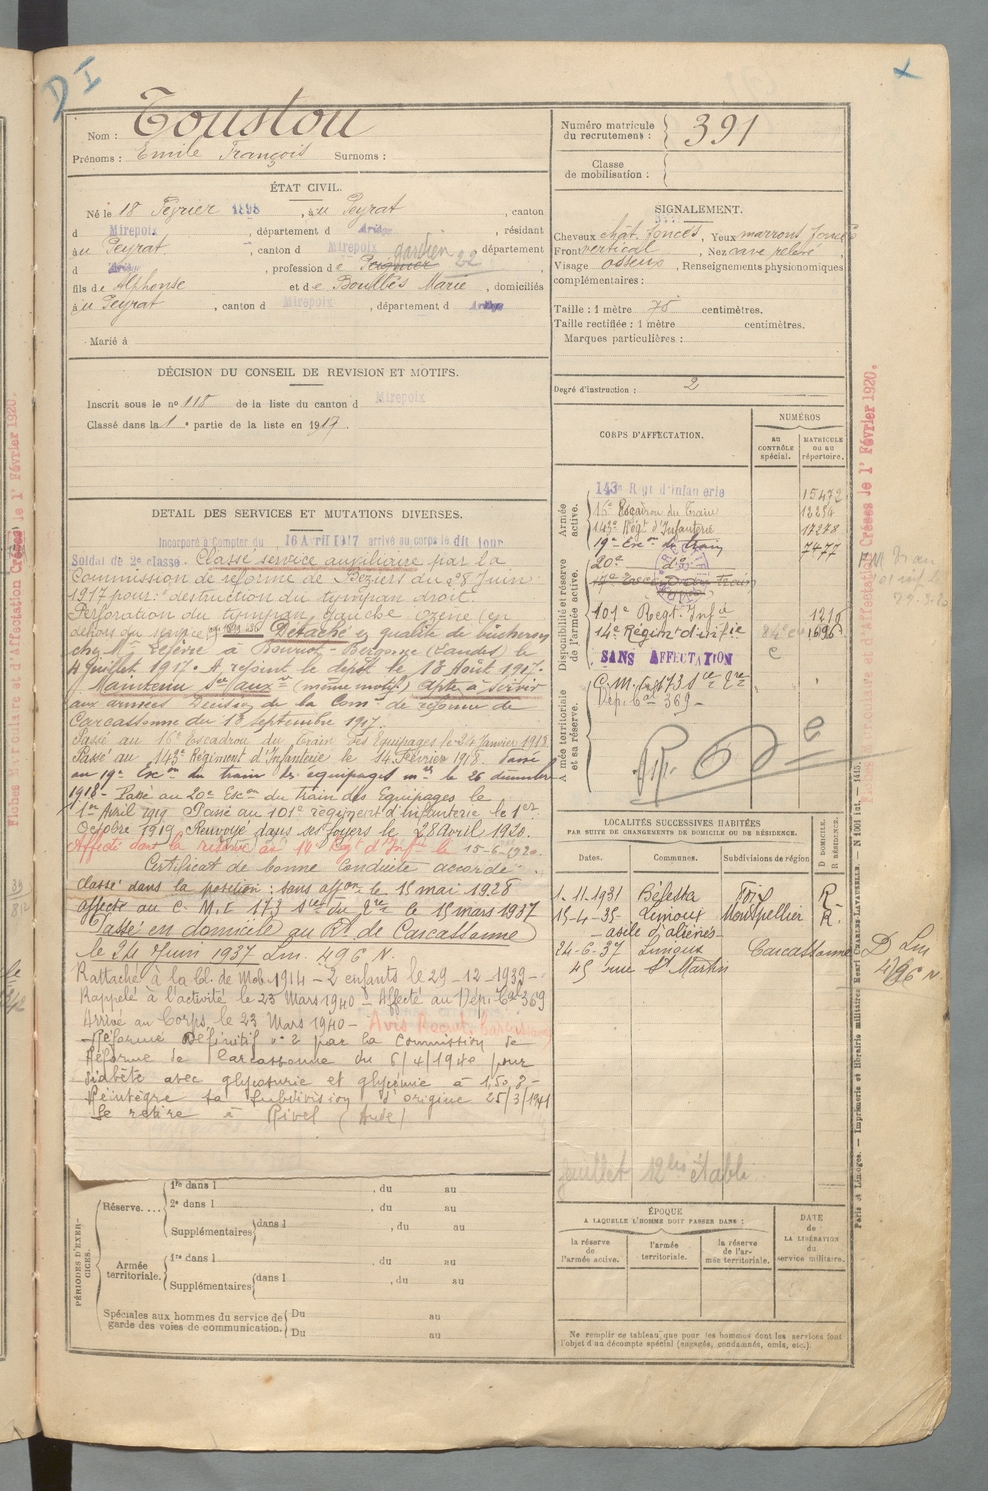 D I
Nom : Toustou
Prénoms : Emile François Surnoms :
Numéro matricule du recrutement : 391
Classe de mobilisation :
ÉTAT CIVIL.
Né le 18 Février 1898, à u Peyrat, canton
d Mirepoix, département d Ariège, résidant
à u Peyrat, canton d Mirepoix département
d Ariège, profession d e gardien 22
fils d e Alphonse et d e Boulbès Marie, domiciliés
à u Peyrat, canton d Mirepoix, département d Ariège
Marié à
SIGNALEMENT.
Cheveux chât. foncés, Yeux marrons foncés
Front vertical, Nez cave relevé
Visage osseux, Renseignements physionomiques
complémentaires :
Taille : 1 mètre 75 centimètres.
Taille rectifiée : 1 mètre centimètres.
Marques particulières :
Degré d'instruction : 2
DÉCISION DU CONSEIL DE REVISION ET MOTIFS.
Inscrit sous le nº 118 de la liste du canton d Mirepoix
Classé dans la 1e partie de la liste en 1917.
DETAIL DES SERVICES ET MUTATIONS DIVERSES.
Incorporé à Compter du 16 Avril 1917 arrivé au corps le dit jour
Soldat de 2e classe. Classé service auxiliaire par la
Commission de réforme de Béziers du 28 Juin
1917 pour : destruction du tympan droit.
Perforation du tympan gauche Ozène (en
dehors du service) Détaché en qualité de bûcheron
chez Mr Lefèvre à Bourriot-Bergonce (Landes) le
4 Juillet 1917. A rejoint le dépôt le 18 Août 1917.
Maintenu Sce Auxre (même motif) apte à servir
aux armées Décision de la Comon de réforme de
Carcassonne du 18 septembre 1917.
Passé au 16e Escadron du Train des Equipages le 24 Janvier 1918
Passé au 143e Régiment d'Infanterie le 14 Février 1918. Passé
au 19e Escon du train des équipages mres le 26 décembre
1918 - Passé au 20e Escon du train des Equipages le
1er Avril 1919 Passé au 101e régiment d'infanterie le 1er
Octobre 1919 Renvoyé dans ses foyers le 28 Avril 1920.
Affecté dans la réserve au 14 Regt d'Infie le 15-6-1920.
Certificat de bonne Conduite accordé.
classé dans la position : sans affon le 15 mai 1928
affecté au C. M. I 173 le 15 mars 1937
Passé en domicile au Rt de Carcassonne
le 24 Juin 1937 Lm. 496 N.
Rattaché à la cl. de Mob. 1914 - 2 enfants le 29-12-1939-
Rappelé à l'activité le 23 Mars 1940 - Affecté au Dép. Cal 369
Arrivé au Corps le 23 Mars 1940 - Avis Recrut. Carcassonne
Réforme Définitif nº 2 par la Commission de
Réforme de Carcassonne du 6/4/1940 pour
diabète avec glycosurie et glycémie à 1,50,3-
Réintègre sa subdivision d'origine 25/3/1941
Se retire à Rivel (Aude)
CORPS D'AFFECTATION.
NUMÉROS
AU CONTRÔLE spécial.
MATRICULE OU AU répertoire.
Armée active.
143e Régt d'Infanterie 15472
16e Escadron du Train 12254
143e Régt d'Infanterie 17278
19e Escon du train 7477
20e do
Disponibilité et réserve de l'armée active.
101e Regt. Infie 1210
14e Régim. d'infie 1696
SANS AFFECTATION
Armée territoriale et sa réserve.
C. M. Inf 173
Dép. Cal 369 -
LOCALITÉS SUCCESSIVES HABITÉES
PAR SUITE DE CHANGEMENTS DE DOMICILE OU DE RÉSIDENCE.
Dates. Communes. Subdivisions de région D DOMICILE. R RÉSIDENCE.
1-11-1931 Bélesta Foix R-
15-4-35- Limoux Montpellier R.
- asile d'aliénés-
24-6-37 Limoux Carcassonne D Lm
45 rue St Martin 496 N
feuillet 12 bis établi.
PÉRIODES D'EXERCICES.
Réserve.... 1re dans l , du au
2e dans l , du au
Supplémentaires dans l , du au
Armée territoriale. 1re dans l , du au
Supplémentaires dans l , du au
Spéciales aux hommes du service de garde des voies de communication. Du au
Du au
ÉPOQUE
A LAQUELLE L'HOMME DOIT PASSER DANS :
la réserve de l'armée active.
l'armée territoriale.
la réserve de l'armée territoriale.
DATE de LA LIBÉRATION du service militaire.
Ne remplir ce tableau que pour les hommes dont les services font
l'objet d'au décompte spécial (engagés, condamnés, omis, etc.).
Paris et Limoges. — Imprimerie et librairie militaires Henri CHARLES-LAVAUZELLE.
Fiches Matriculaire et d'Affectation Créées le 1er Février 1920.
Fiches Matriculaire et d'Affectation Créées le 1er Février 1920.